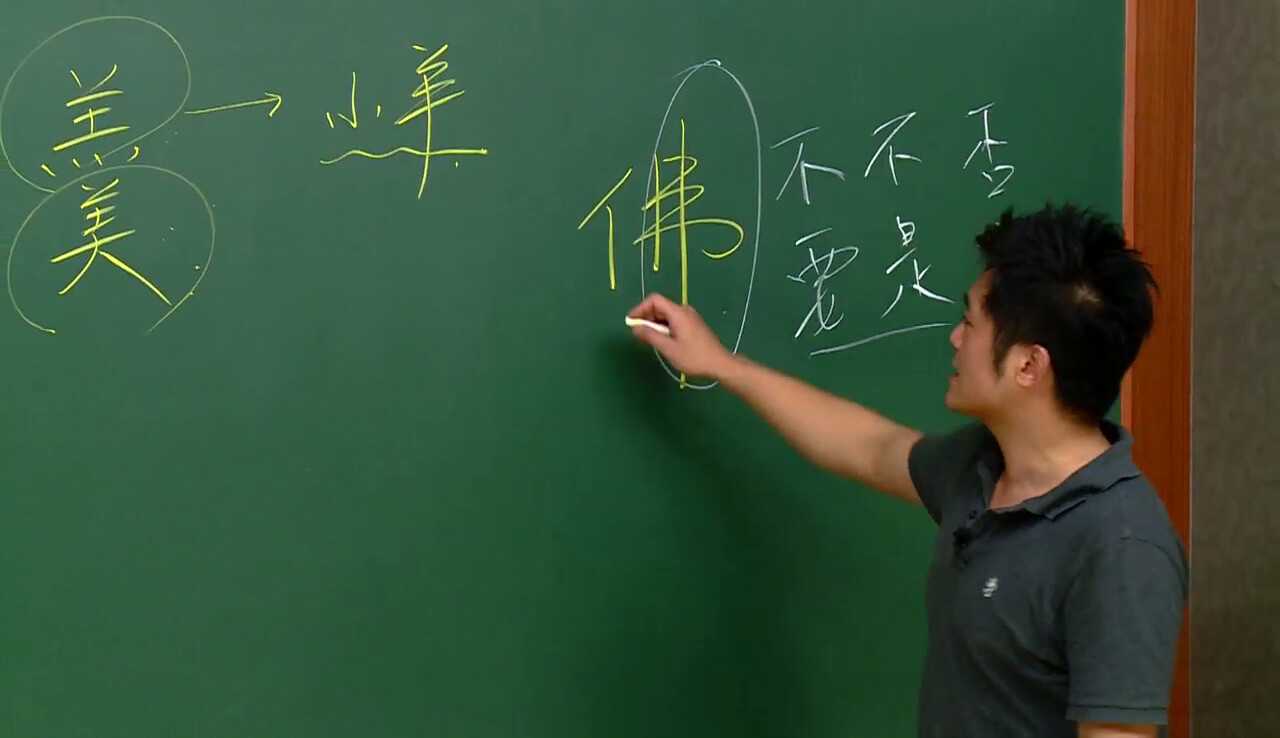 羔 → 小羊
美
佛
不 不 否
要 是